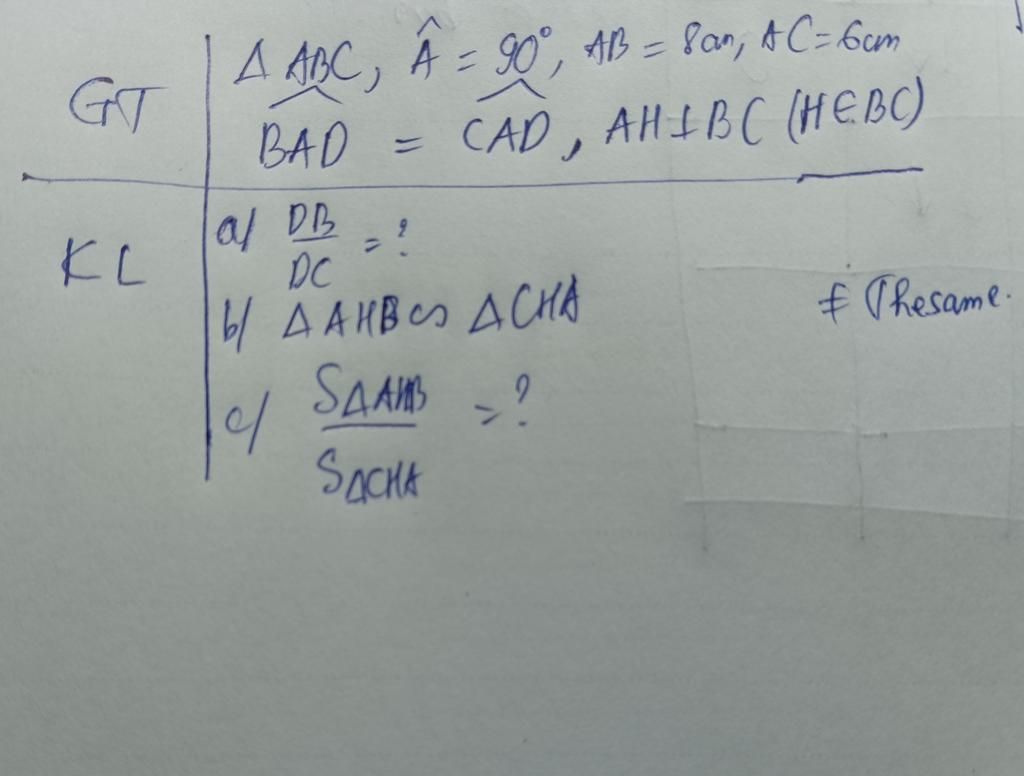 GT
Δ ABC, Â = 90°, AB = 8cm, AC = 6cm
BAD = CAD, AH⊥BC (H∈BC)
KL
a/ DB/DC = ?
b/ ΔAHB ∽ ΔCHA
c/ SΔAHB/SΔCHA = ?